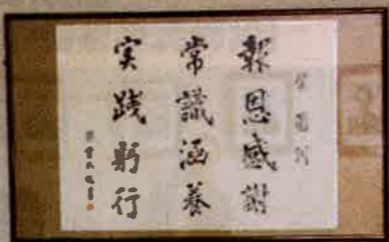 報恩感謝
常識涵養
実践躬行